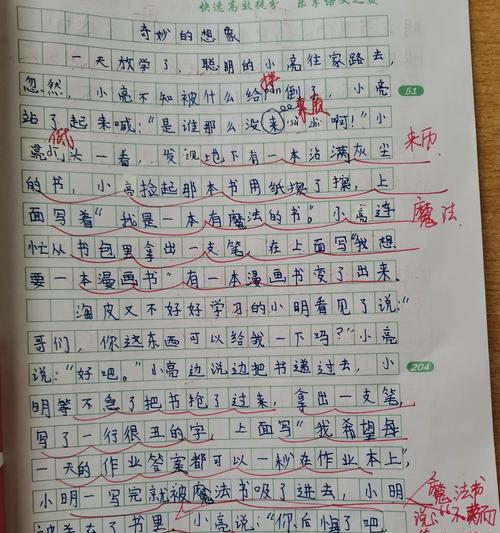 快速高效提分 乐享语文之美
奇妙的想象
一天放学了，聪明的小亮往家路去，
忽然，小亮不知被什么给pan倒了，小亮
站了起来喊："是谁那么没来su zhi啊！"小
亮di头一看，发现地下有一本沾满灰尘
的书，小亮捡起那本书用纸擦了擦，上
面写着"我是一本有魔法的书"。小亮连
忙从书包里拿出一支笔，在上面写"我想
要一本漫画书"有一本漫画书变了出来.
淘皮又不好好学习的小明看见了说："
哥们，你这东西可以给我一下吗？"小亮
说："好吧。"小亮边说边把书递过去，小
明等不急了把书抢了过来，拿出一支笔，
写了一行很丑的字，上面写"我希望每
一天的作业答案都可以一秒在作业本上"，
小明一写完就被魔法书吸了进去，小明
被关在了书里，小亮说："你后悔了吧
低
绊
51
来历
魔法
204
魔法书
说："不劳而